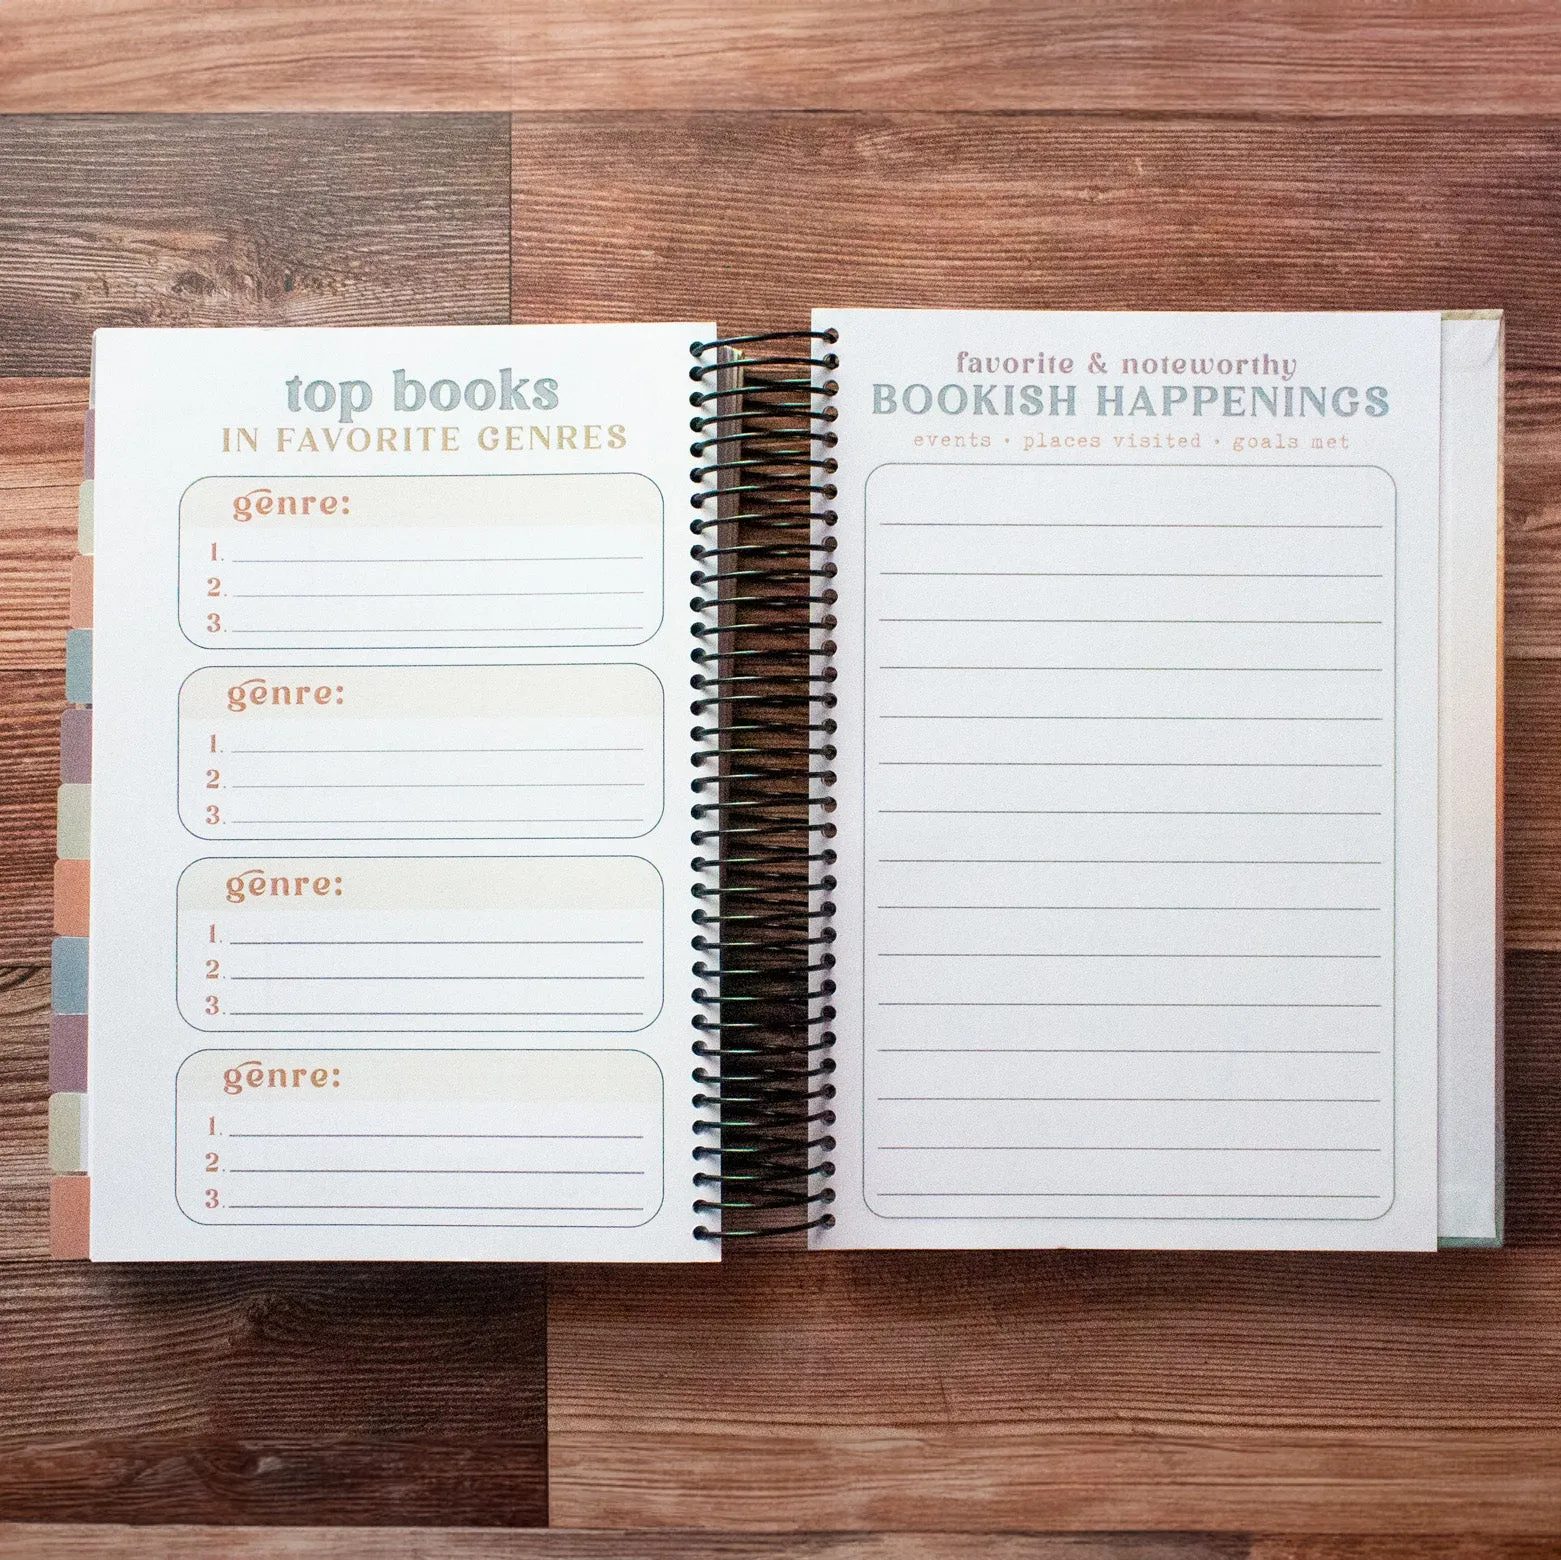 top books
IN FAVORITE GENRES
genre:
1.
2.
3.
genre:
1.
2.
3.
genre:
1.
2.
3.
genre:
1.
2.
3.
favorite & noteworthy
BOOKISH HAPPENINGS
events • places visited • goals met